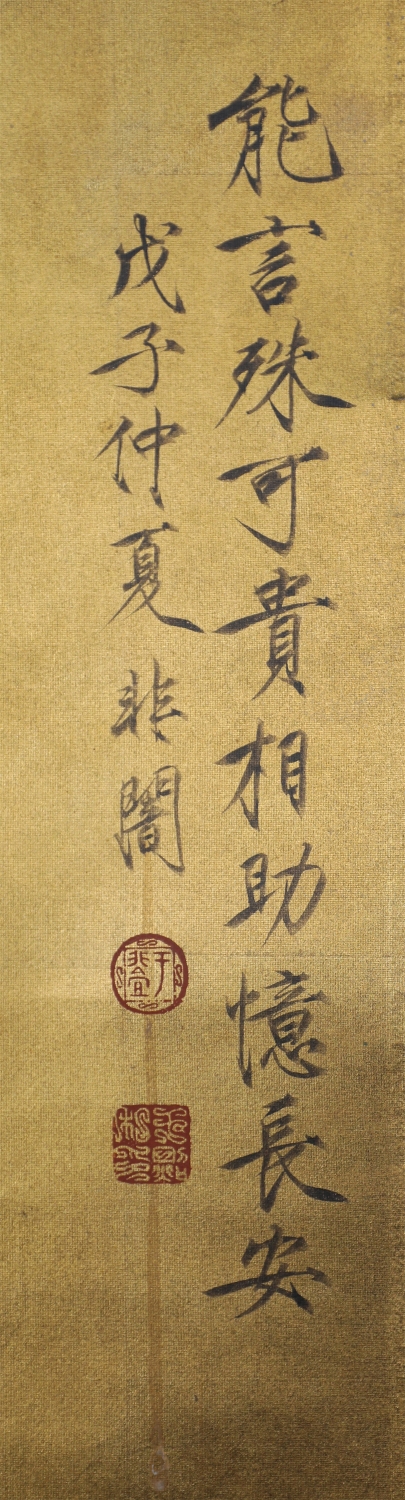 能言殊可貴相助憶長安
戊子仲夏 非闇